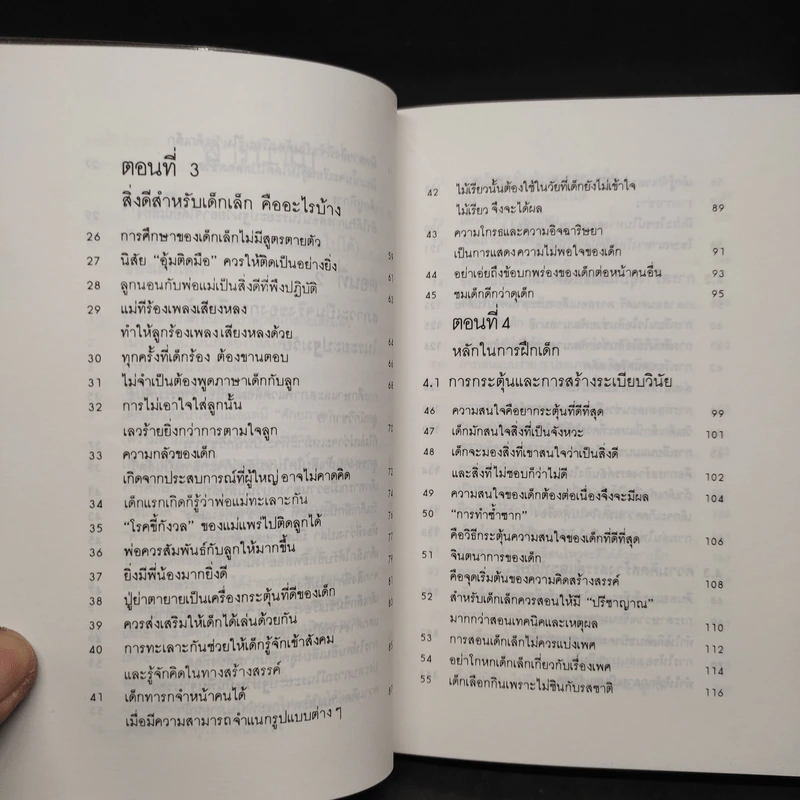 ตอนที่ 3
สิ่งดีสำหรับเด็กเล็ก คืออะไรบ้าง
26 การศึกษาของเด็กเล็กไม่มีสูตรตายตัว
27 นิสัย “อุ้มติดมือ” ควรให้ติดเป็นอย่างยิ่ง
28 ลูกนอนกับพ่อแม่เป็นสิ่งดีที่พึงปฏิบัติ
29 แม่ที่ร้องเพลงเสียงหลง
ทำให้ลูกร้องเพลงเสียงหลงด้วย 64
30 ทุกครั้งที่เด็กร้อง ต้องขานตอบ 66
31 ไม่จำเป็นต้องพูดภาษาเด็กกับลูก 68
32 การไม่เอาใจใส่ลูกนั้น
เลวร้ายยิ่งกว่าการตามใจลูก
33 ความกลัวของเด็ก
เกิดจากประสบการณ์ที่ผู้ใหญ่อาจไม่คาดคิด
34 เด็กแรกเกิดก็รู้ว่าพ่อแม่ทะเลาะกัน
35 “โรคขี้กังวล” ของแม่แพร่ไปติดลูกได้
36 พ่อควรสัมพันธ์กับลูกให้มากขึ้น
37 ยิ่งมีพี่น้องมากยิ่งดี
38 ปู่ย่าตายายเป็นเครื่องกระตุ้นที่ดีของเด็ก
39 ควรส่งเสริมให้เด็กได้เล่นด้วยกัน
40 การทะเลาะกันช่วยให้เด็กรู้จักเข้าสังคม
และรู้จักคิดในทางสร้างสรรค์
41 เด็กทารกจำหน้าคนได้
เมื่อมีความสามารถจำแนกรูปแบบต่าง ๆ
42 ไม้เรียวนั้นต้องใช้ในวัยที่เด็กยังไม่เข้าใจ
ไม้เรียว จึงจะได้ผล 89
43 ความโกรธและความอิจฉาริษยา
เป็นการแสดงความไม่พอใจของเด็ก 91
44 อย่าเอ่ยถึงข้อบกพร่องของเด็กต่อหน้าคนอื่น 93
45 ชมเด็กดีกว่าดุเด็ก 95
ตอนที่ 4
หลักในการฝึกเด็ก
4.1 การกระตุ้นและการสร้างระเบียบวินัย
46 ความสนใจคือยากระตุ้นที่ดีที่สุด 99
47 เด็กมักสนใจสิ่งที่เป็นจังหวะ 101
48 เด็กจะมองสิ่งที่เขาสนใจว่าเป็นสิ่งดี
และสิ่งที่ไม่ชอบก็ว่าไม่ดี 102
49 ความสนใจของเด็กต้องต่อเนื่องจึงจะมีผล 104
50 “การทำซ้ำซาก”
คือวิธีกระตุ้นความสนใจของเด็กที่ดีที่สุด 106
51 จินตนาการของเด็ก
คือจุดเริ่มต้นของความคิดสร้างสรรค์ 108
52 สำหรับเด็กเล็กควรสอนให้มี “ปรีชาญาณ”
มากกว่าสอนเทคนิคและเหตุผล 110
53 การสอนเด็กเล็กไม่ควรแบ่งเพศ 112
54 อย่าโกหกเด็กเล็กเกี่ยวกับเรื่องเพศ 114
55 เด็กเลือกกินเพราะไม่ชินกับรสชาติ 116